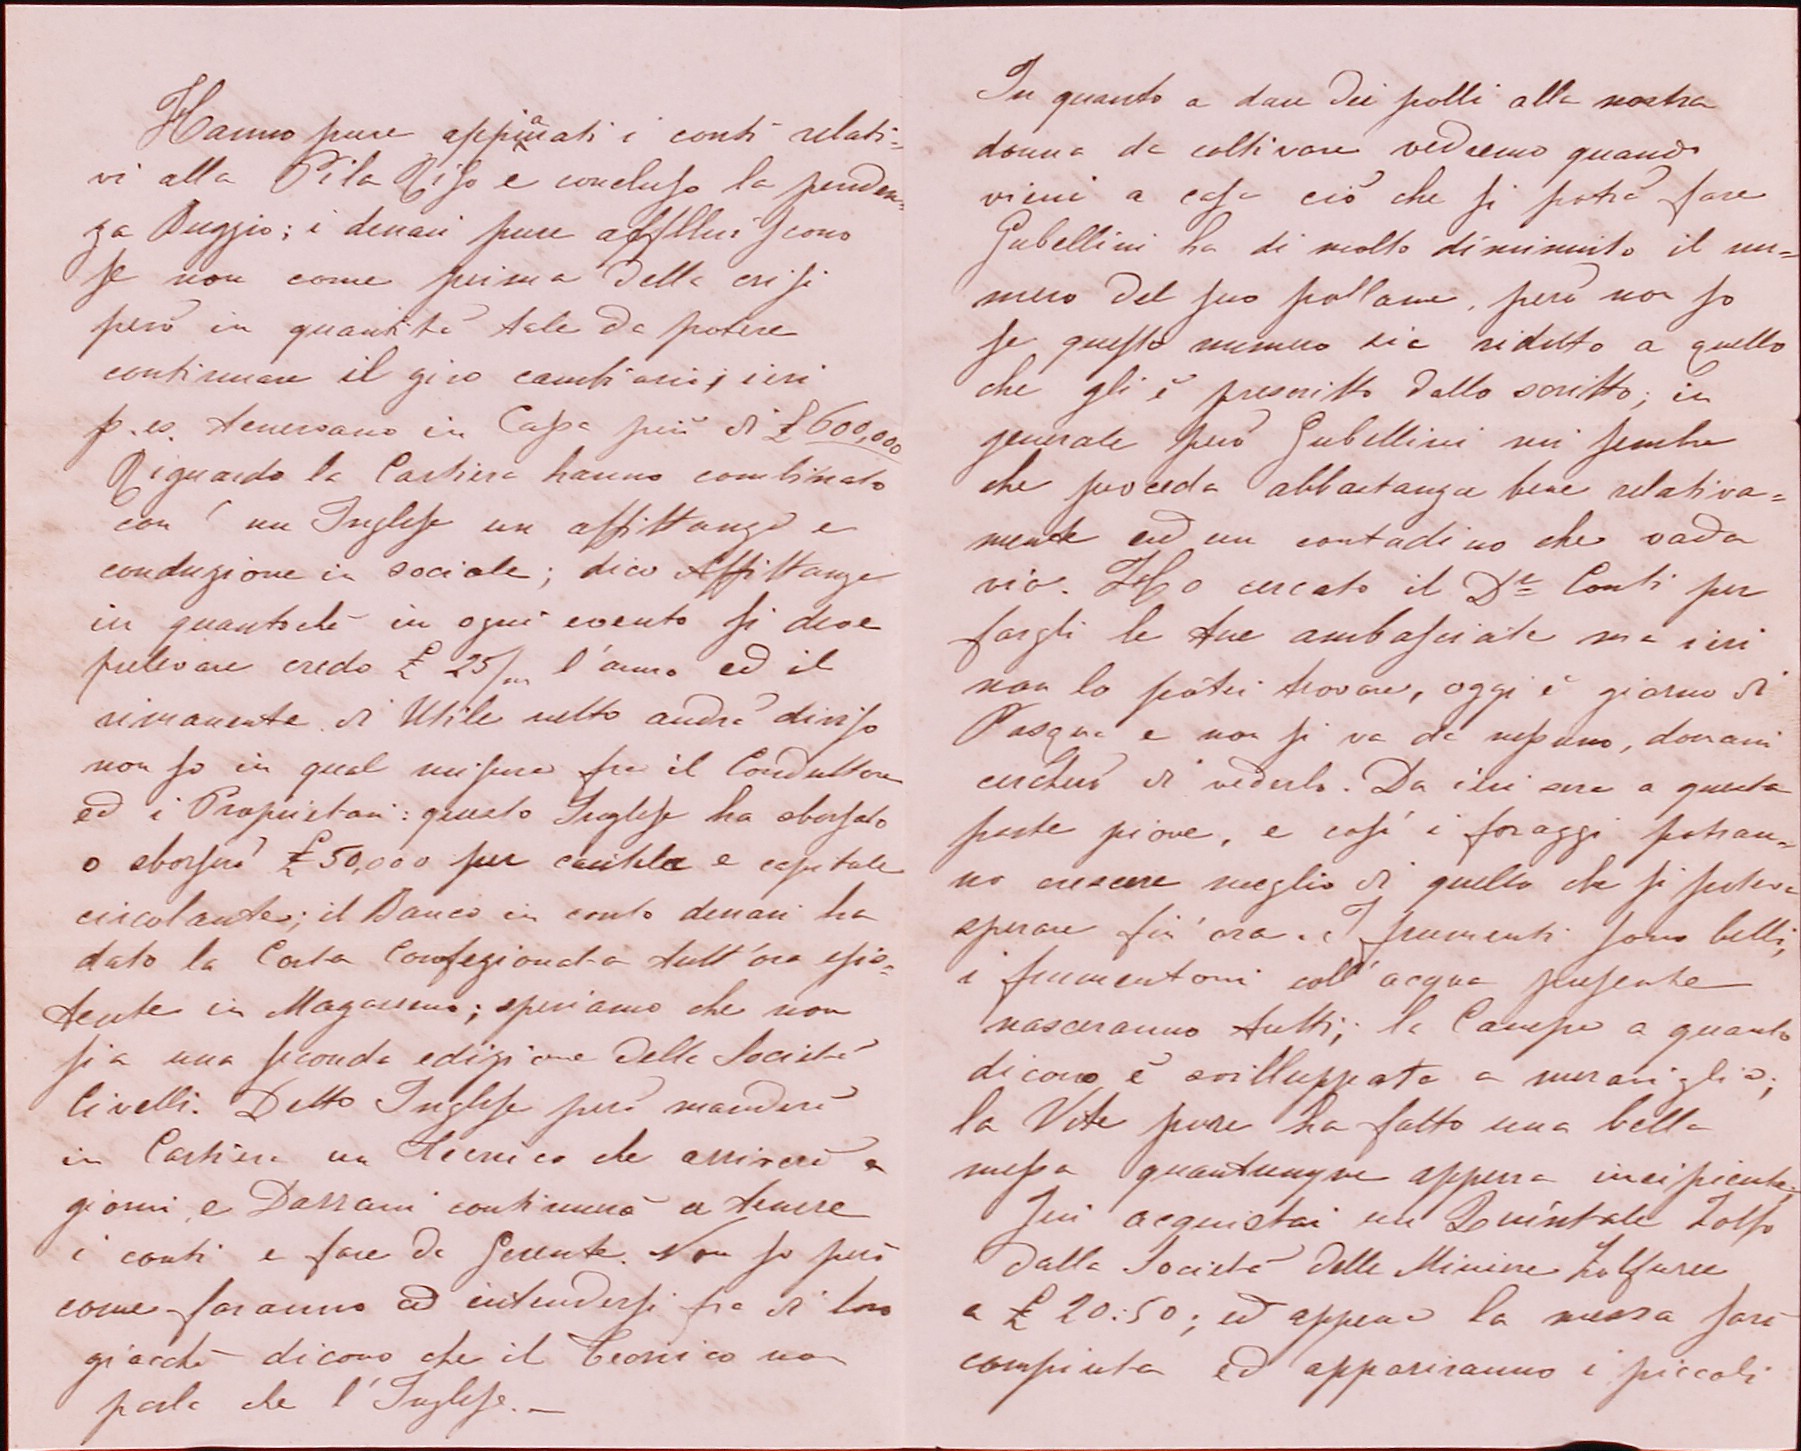 Hanno pure appianati i conti relati=
vi alla Pila Riso e concluso la penden=
za Buggio; i denari pure affluiscono
se non come prima della crisi
però in quantità tale da potere
continuare il giro cambiario; ieri
p. es. tenevano in Cassa più di £ 600,000
Riguardo la Cartiera hanno combinato
con un Inglese un affittanza e
conduzione in sociale; dico Affittanza
in quantochè in ogni evento si deve
prelevare credo £ 25/m l'anno ed il
rimanente di Utile netto andrà diviso
non so in qual misura fra il Conduttore
ed i Proprietari: questo Inglese ha sborsato
o sborserà £ 50,000 per cautela e capitale
circolante; il Banco in conto denari ha
dato la Carta Confezionata tutt'ora esis=
tente in Magazzeno; speriamo che non
sia una seconda edizione della Società
Civelli. Detto Inglese però manderà
in Cartiera un tecnico che arriverà a
giorni e Dassani continuerà a tenere
i conti e fare da Gerente. Non so però
come faranno ad intendersi fra di loro
giacchè dicono che il Tecnico non
parla che l'Inglese. _
In quanto a dare dei polli alla nostra
donna da coltivare vedremo quando
vieni a casa ciò che si potrà fare
Gubellini ha di molto diminuito il nu=
mero del suo pollame, però non so
se questo numero sia ridotto a quello
che gli è prescritto dallo scritto; in
generale però Gubellini mi sembra
che proceda abbastanza bene relativa=
mente ad un contadino che vada
via. Ho cercato il Dr Conti per
fargli le tue ambasciate ma ieri
non lo potei trovare, oggi è giorno di
Pasqua e non si va da nessuno, domani
cercherò di vederlo. Da ieri sera a questa
parte piove, e così i foraggi potran=
no crescere meglio di quello che si poteva
sperare fin'ora. I frumenti sono belli,
i frumentoni coll'acqua presente
nasceranno tutti; la Canepa a quanto
dicono è svilluppata a meraviglia;
la Vite pure ha fatto una bella
messa quantunque appena incipiente;
Ieri acquistai un Quintale Zolfo
dalla Società delle Miniere Zolfuree
a £ 20:50; ed appena la messa sarà
compiuta ed appariranno i piccoli